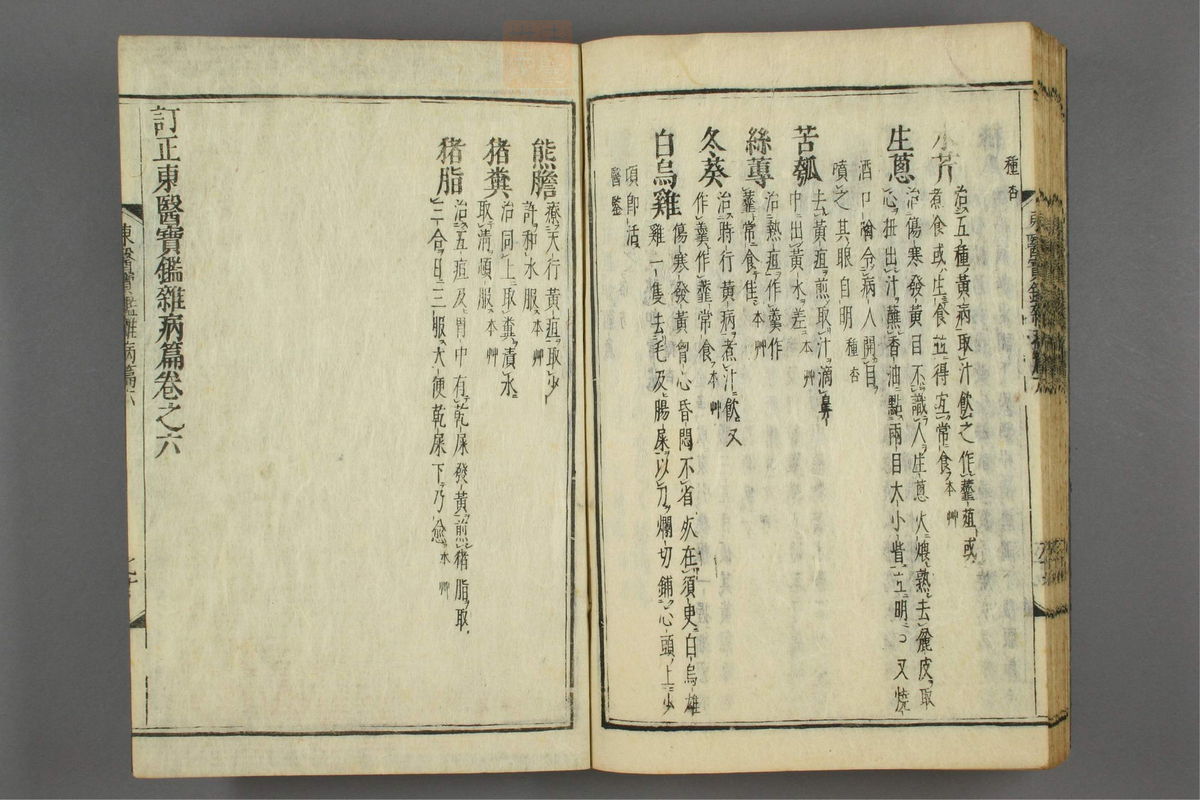 種杏
水芹
治五種黃病取汁飲之作虀菹或
煮食或生食並得宜常食本艸
生蔥
治傷寒發黃目不識人生蔥火煨熟去麄皮取
心扭出汁蘸香油點兩目大小眥立明又燒
酒口噙令病人開目
噴之其眼自明種杏
苦瓠
去黃疸煎取汁滴鼻
中出黃水差本艸
絲蓴
治熱疸作羹作
虀常食佳本艸
冬葵
治時行黃病煮汁飲又
作羹作虀常食本艸
白烏雞
傷寒發黃胷心昏悶不省灾在須臾白烏雄
雞一隻去毛及腸屎以刀爛切鋪心頭上少
頃卽活
醫鑒
東醫寶鑑雜病篇六
熊膽
療天行黃疸取少
許和水服本艸
猪糞
治同上取糞漬水
取淸頓服本艸
猪脂
治五疸及胃中有乾屎發黃煎猪脂取
三合日三服大便乾屎下乃愈本艸
訂正東醫寶鑑雜病篇卷之六
東醫寶鑑雜病篇六